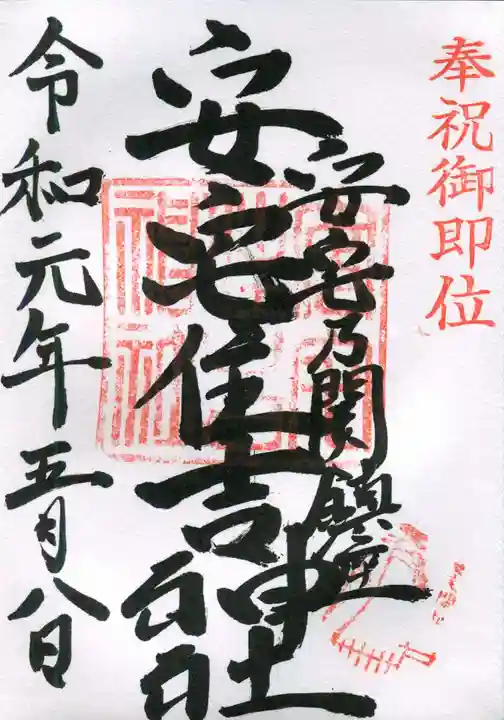 奉祝御即位
安宅乃関鎮座
安宅住吉神社
令和元年五月八日